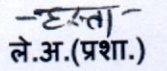 -हस्ता-
ले.अ.(प्रशा.)